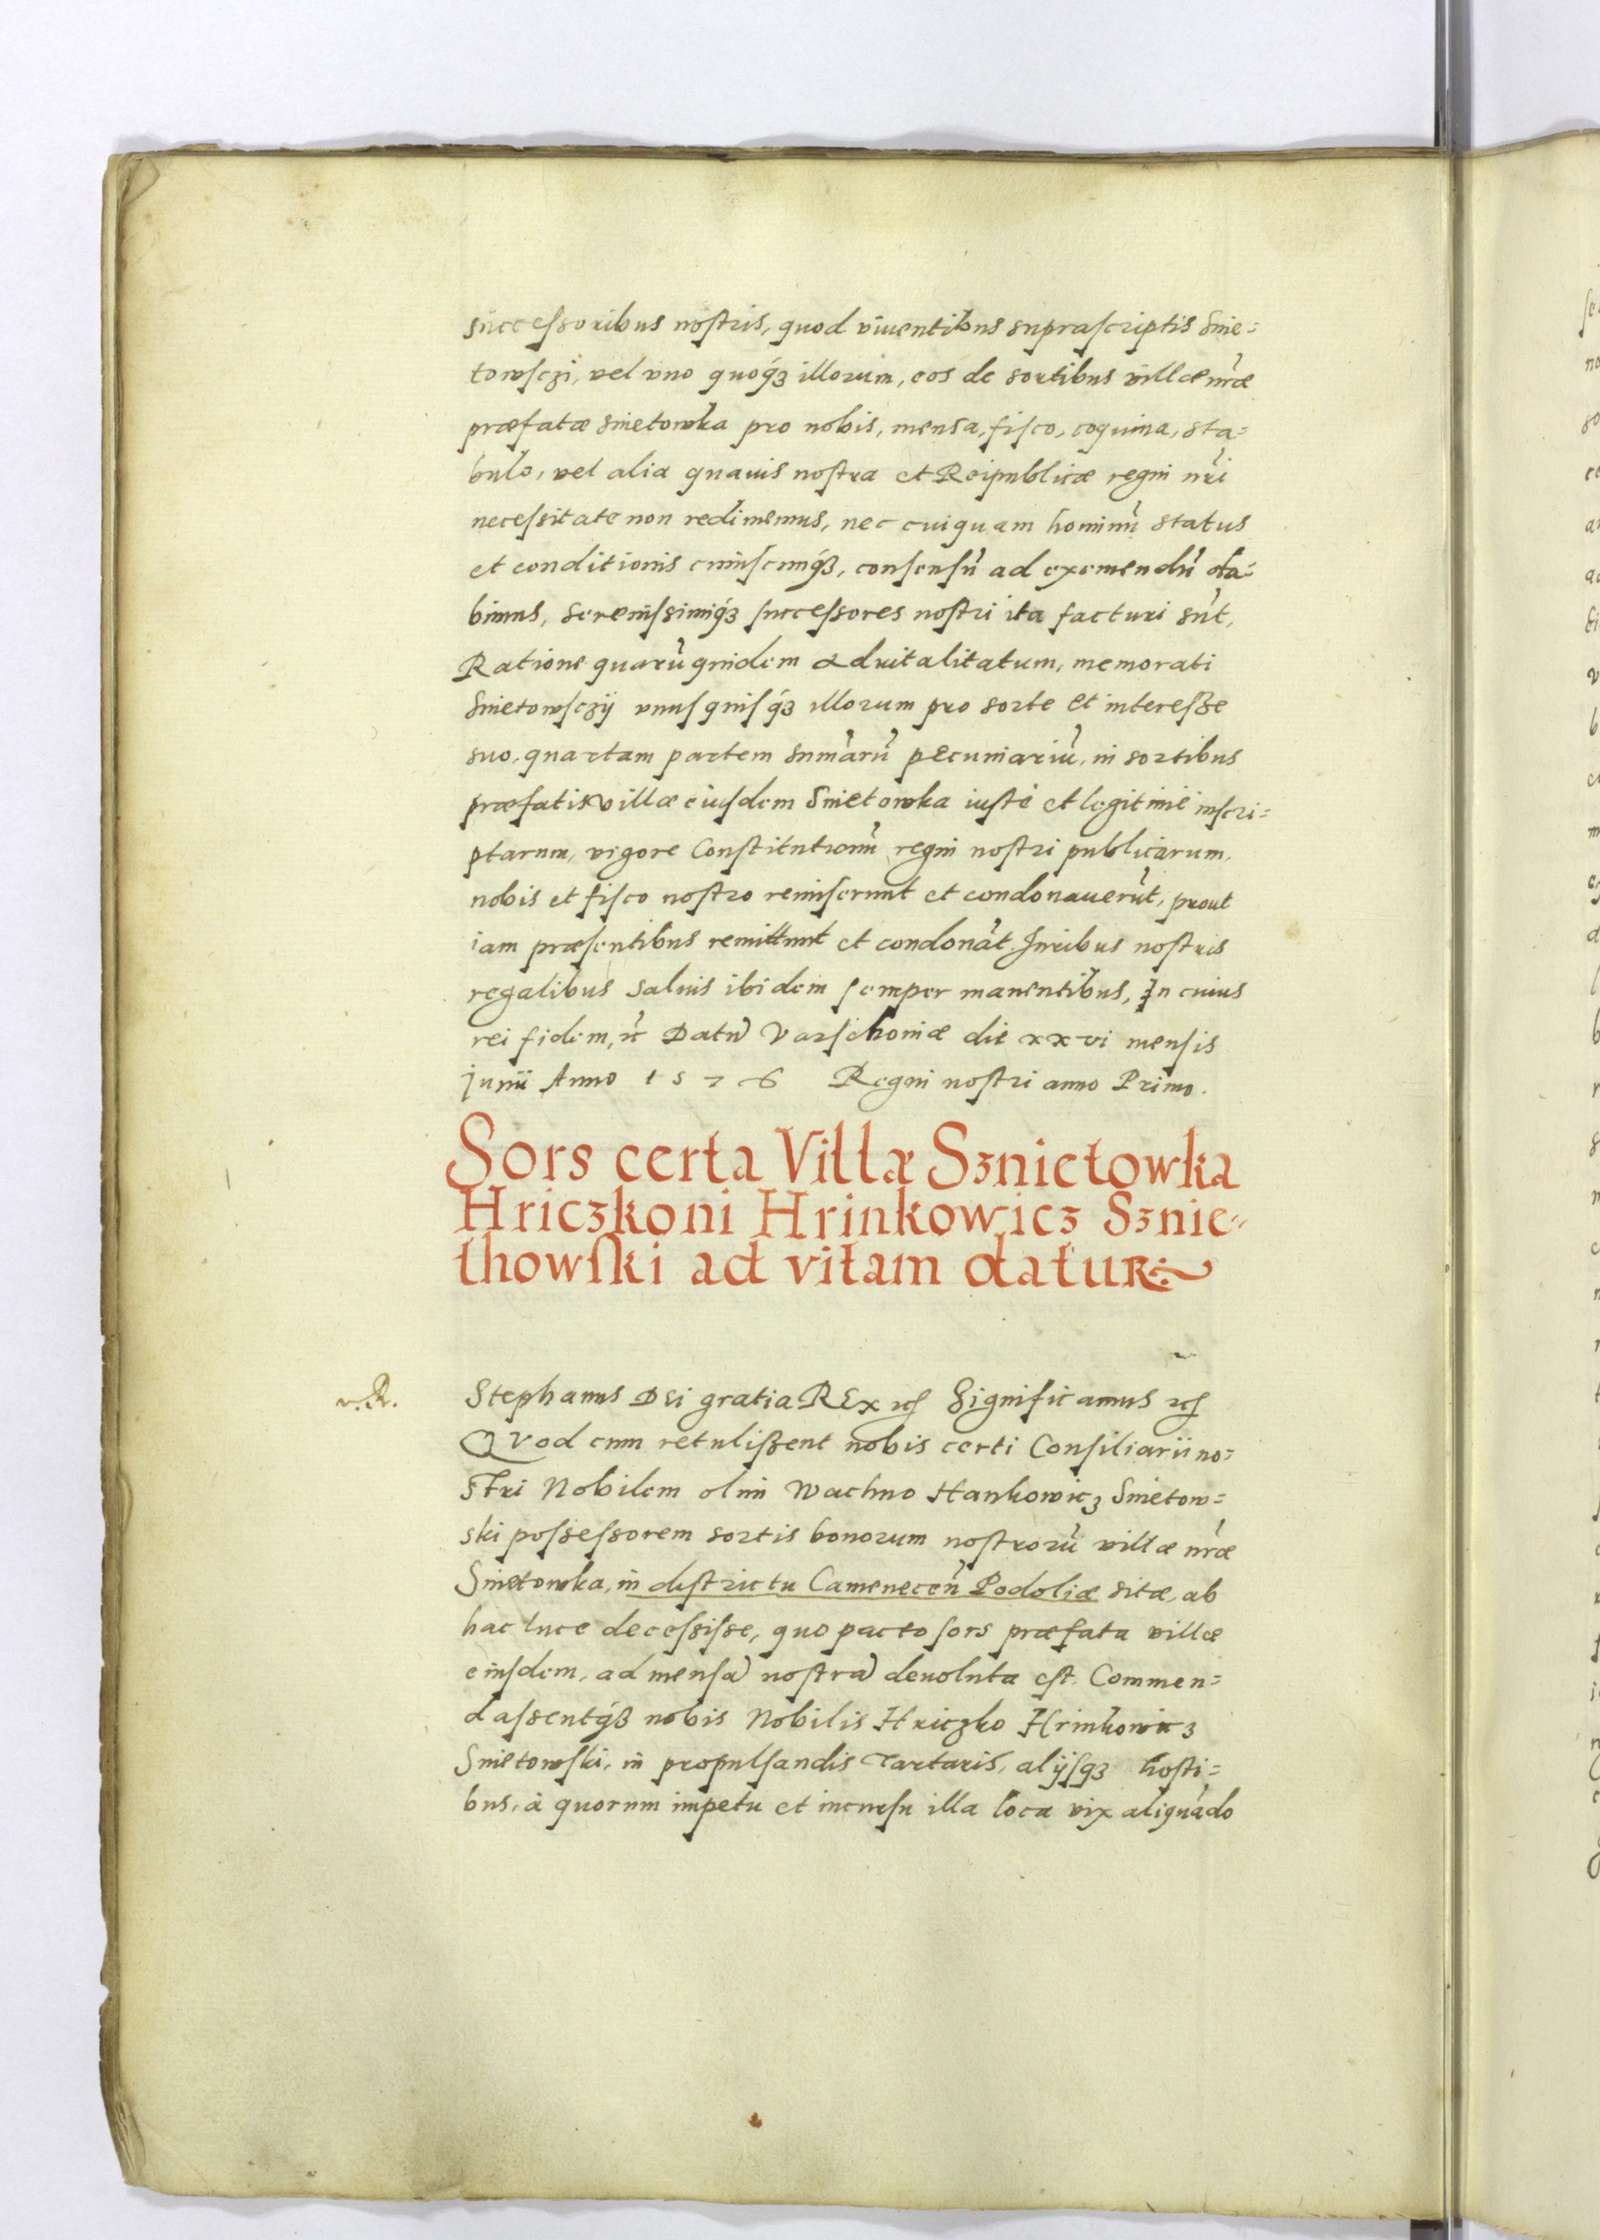 successoribus nostris, quod viuentibus suprascriptis Snie=
towsczi, vel vno quoq́ꝫ illorum, eos de sortibus villæ nr̃æ
præfatæ snietowka pro nobis, mensa, fisco, coquina, sta=
bulo, vel alia quauis nostra et Reipublicæ regni nr̃i
necessitate non redimemus, nec cuiquam hominũ status
et conditionis cuiuscunq́ꝫ, consensũ ad eximendũ da=
bimus, Serenissimiq́ꝫ successores nostri ita facturi sũt,
Ratione quarũ quidem aduitalitatum, memorati
Snietowsczÿ vnusquisq́ꝫ illorum pro sorte et interesse
suo, quartam partem sum̃arũ pecuniariũ, in sortibus
præfatis villæ eiusdem Snietowka iustè et legitimè inscri=
ptarum, vigore Constitutionũ regni nostri publicarum,
nobis et fisco nostro remiserunt et condonauerũt, prout
iam præsentibus remittunt et condonãt. Iuribus nostris
regalibus saluis ibidem semper manentibus, In cuius
rei fidem, ꝛc̃ Datũ Varschouiæ die xxvi mensis
junii Anno 1576 Regni nostri anno Primo.
Sors certa Villæ Sznietowka
Hriczkoni Hrinkowicz Sznie=
thowski ad vitam datur
v. R.
Stephanus Dei gratia REx ꝛcʃ Significamus ꝛcʃ
QVod cum retulissent nobis certi Consiliarii no=
stri Nobilem olim Wachno Hankowicz Snietow=
ski possessorem sortis bonorum nostrorũ villæ nr̃æ
Snietowka, in districtu Camenecen̄ Podoliæ sitæ, ab
hac luce decessisse, quo pacto sors præfata villæ
eiusdem, ad mensã nostrã deuoluta est. Commen=
dassentq́ꝫ nobis Nobilis Hriczko Hrinkowicz
Snietowski, in propulsandis Tartaris, alÿsqꝫ hosti=
bus, à quorum impetu et incursu illa loca vix aliquãdo